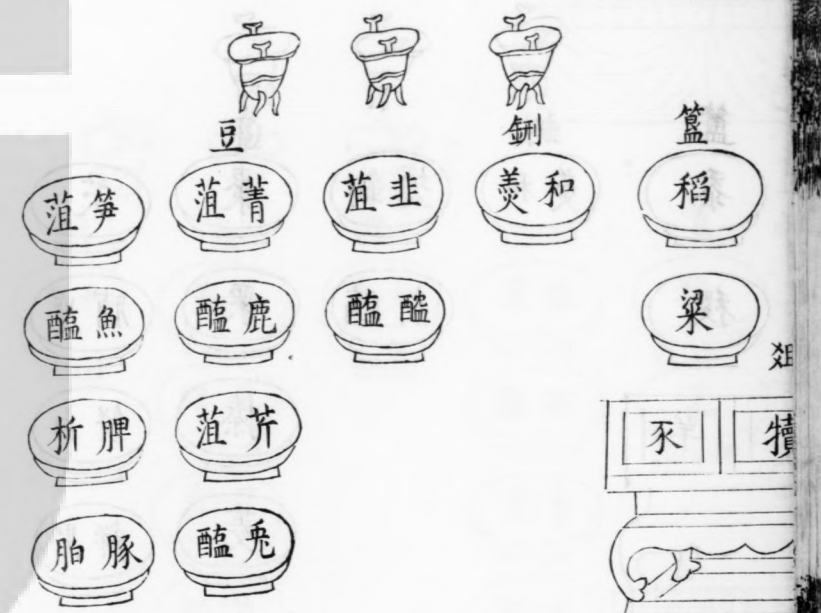 簠
稻
粱
俎
犢
豕
鉶
和羹
豆
韭菹
醓醢
菁菹
鹿醢
芹菹
兎醢
笋菹
魚醢
脾析
豚胉